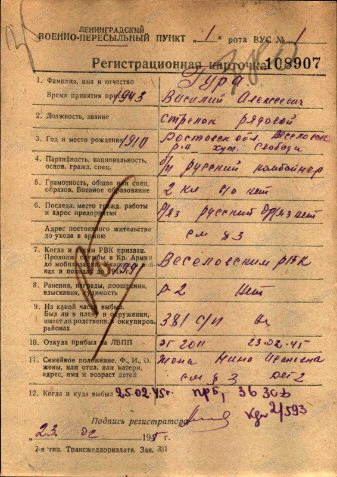 ЛЕНИНГРАДСКИЙ
ВОЕННО-ПЕРЕСЫЛЬНЫЙ ПУНКТ 1 рота ВУС № 1
Регистрационная карточка 108907
1. Фамилия, имя и отчество Гура
Время принятия 1943 Василий Алексеевич
2. Должность, звание стрелок рядовой
3. Год и место рождения 1910 Ростовской обл. Веселовск
р-н хут. Свобода
4. Партийность, национальность, б/п русский комбайнер
основ. гражд. спец.
5. Грамотность, общее или спец. 2 кл с/о нет
образов. Военное образование
6. Последн. место гражд. работы русский
и адрес предприятия
Адрес постоянного жительства см §3
до ухода в армию
7. Когда и каким РВК призван. Веселовским РВК
Продолж. службы в Кр. Армии
до мобилизации 1941
8. Ранения, награды, поощрения, Р-2 нет
взыскания, судимость
9. Из какой части выбыл. 381 с/п
Был ли в плену и окружении,
имеет ли родственников в оккупиров.
районах
10. Откуда прибыл на ЛВПП ЭГ 2011 23.02.45
11. Семейное положение. Ф., И., О. жена Нина
жены, или отца, или матери,
адрес, имя и возраст детей см §3 дет 2
12. Когда и куда выбыл 25.02.45г. 36 зсд
2/593
Подпись регистратора
„23“ 02 1945 г.
2-я тип. Трансжелдориздата. Зак. 331